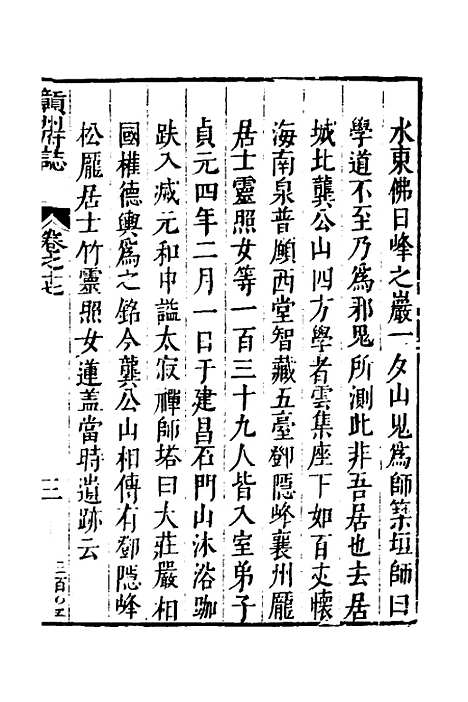 水東佛日峰之巖一夕山鬼爲師築垣師曰
學道不至乃爲邪鬼所測此非吾居也去居
城北龔公山四方學者雲集座下如百丈懷
海南泉普願西堂智藏五臺鄧隱峰襄州龐
居士靈照女等一百三十九人皆入室弟子
貞元四年二月一日于建昌石門山沐浴跏
趺入滅元和中謚太寂禪師塔曰大莊嚴相
國權德輿爲之銘今龔公山相傳有鄧隱峰
松龐居士竹靈照女蓮蓋當時遺跡云
贛州府誌
卷之十七
三